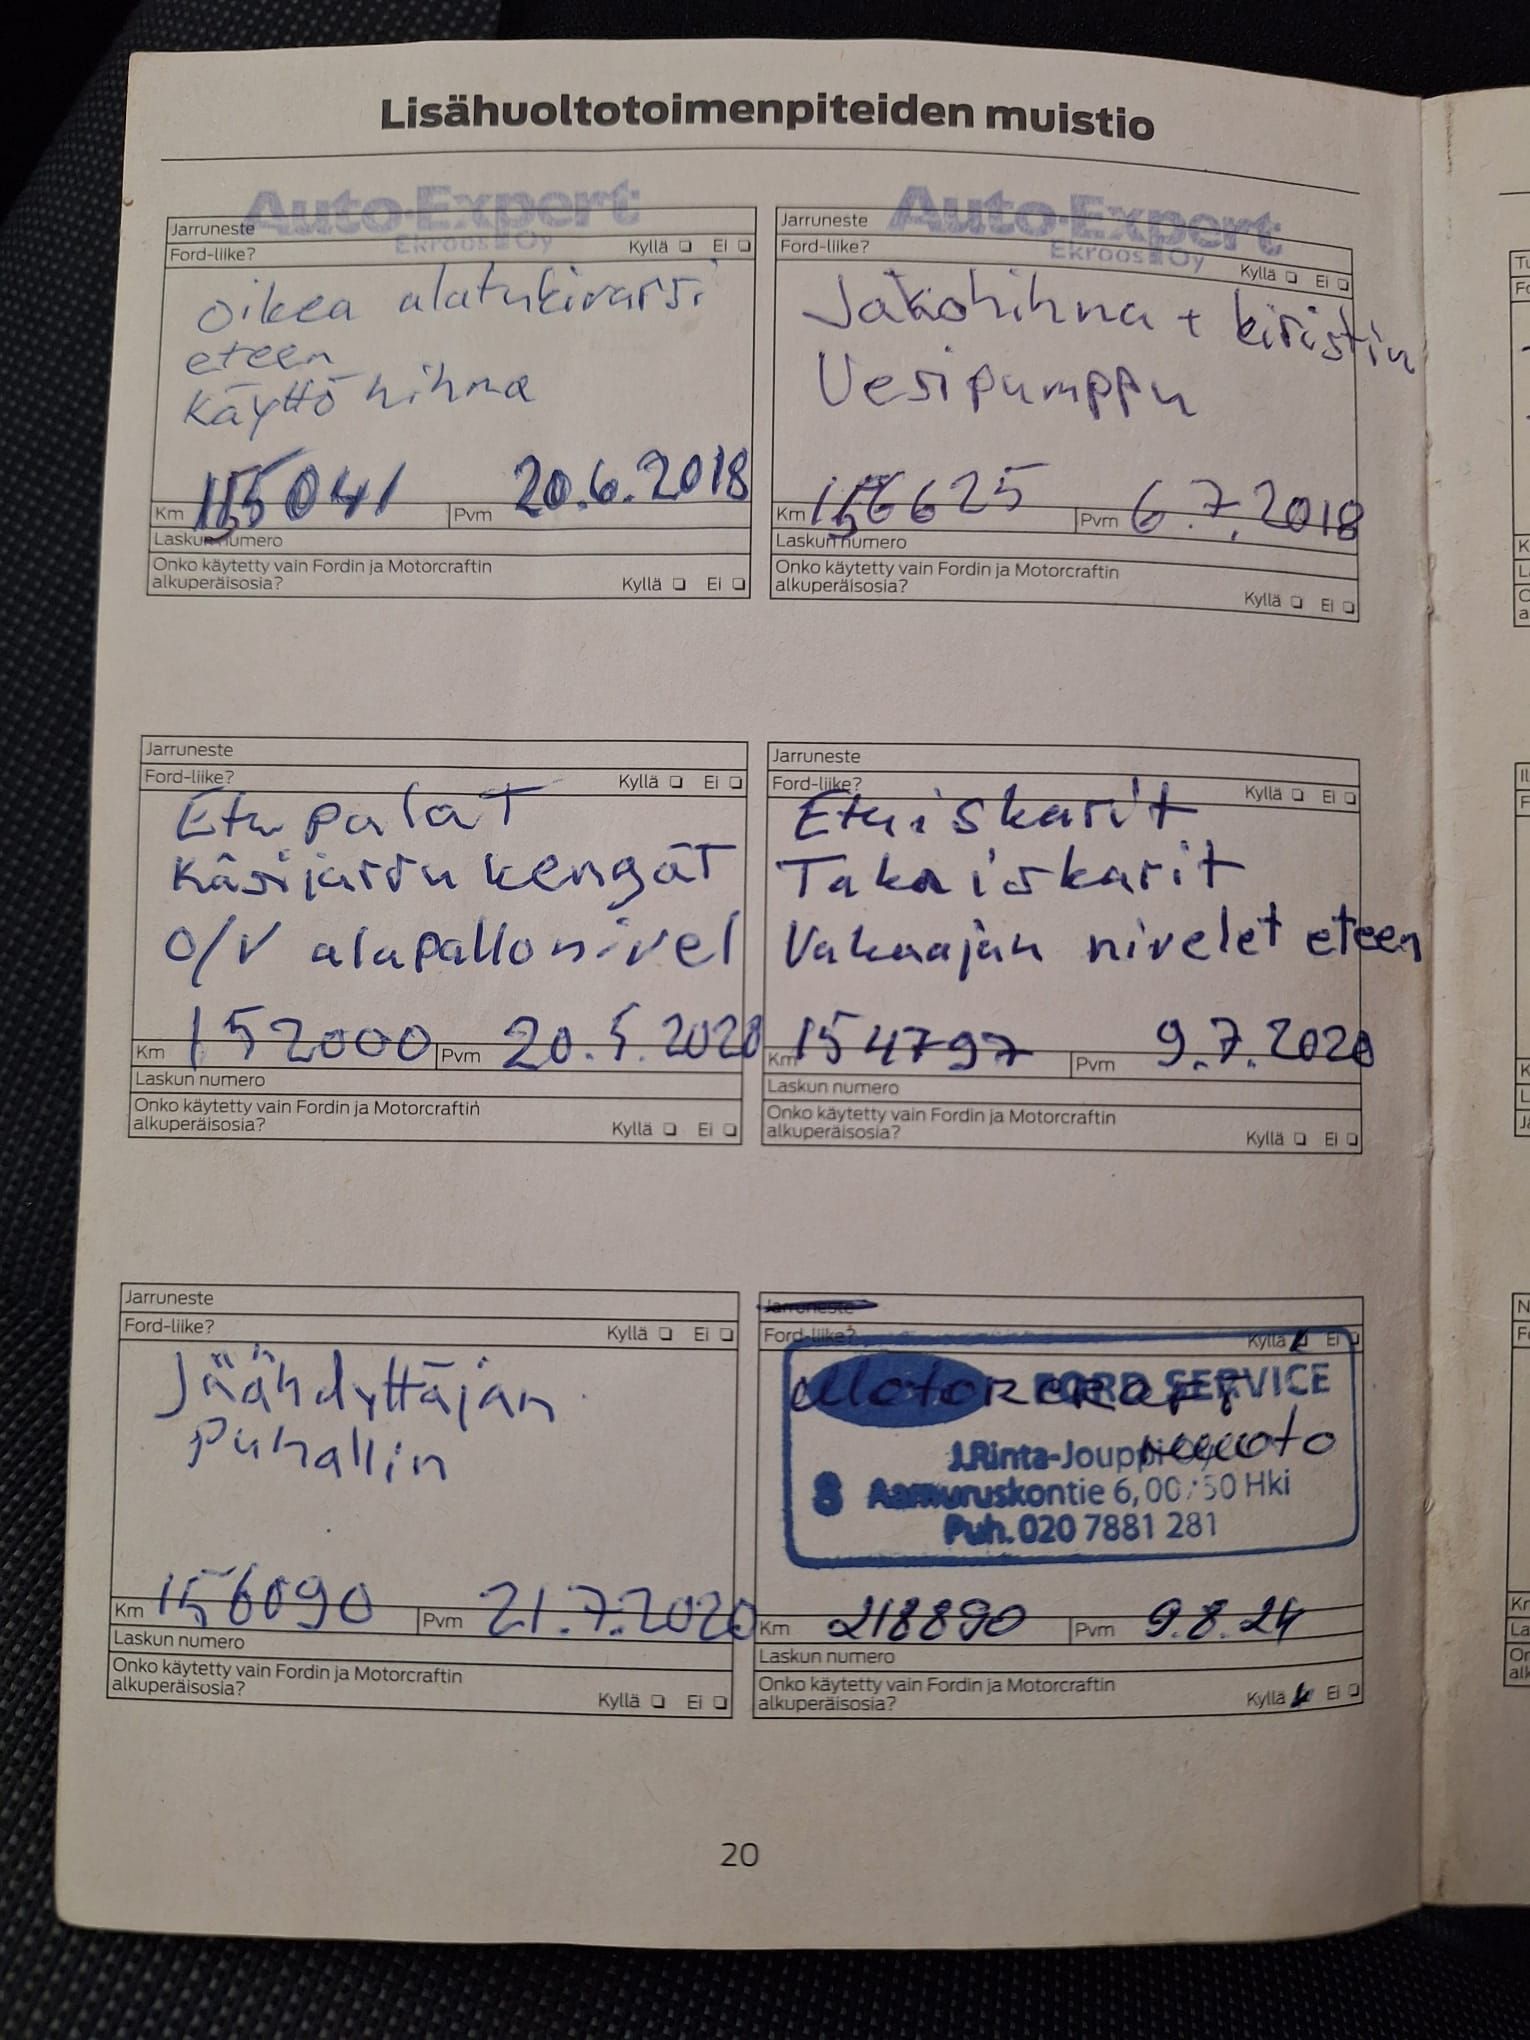 Lisähuoltotoimenpiteiden muistio
Auto-Expert
Ekroos Oy
Jarruneste
Ford-liike? Kyllä ❏ Ei ❏
oikea alatukivarsi
eteen
Käyttöhihna
Km 155041 Pvm 20.6.2018
Laskun numero
Onko käytetty vain Fordin ja Motorcraftin
alkuperäisosia? Kyllä ❏ Ei ❏
Auto-Expert
Ekroos Oy
Jarruneste
Ford-liike? Kyllä ❏ Ei ❏
Jakohihna + kiristin
Vesipumppu
Km 156625 Pvm 6.7.2018
Laskun numero
Onko käytetty vain Fordin ja Motorcraftin
alkuperäisosia? Kyllä ❏ Ei ❏
Jarruneste
Ford-liike? Kyllä ❏ Ei ❏
Etupalat
Käsijarru kengät
O/V alapallonivel
Km 152000 Pvm 20.5.2020
Laskun numero
Onko käytetty vain Fordin ja Motorcraftin
alkuperäisosia? Kyllä ❏ Ei ❏
Jarruneste
Ford-liike? Kyllä ❏ Ei ❏
Etuiskarit
Takaiskarit
Vakaajan nivelet eteen
Km 154797 Pvm 9.7.2020
Laskun numero
Onko käytetty vain Fordin ja Motorcraftin
alkuperäisosia? Kyllä ❏ Ei ❏
Jarruneste
Ford-liike? Kyllä ❏ Ei ❏
Jäähdyttäjän
Puhallin
Km 156090 Pvm 21.7.2020
Laskun numero
Onko käytetty vain Fordin ja Motorcraftin
alkuperäisosia? Kyllä ❏ Ei ❏
Jarruneste
Ford-liike? Kyllä Ei ❏
FORD SERVICE
Motorcraft
huolto
J.Rinta-Jouppi Oy
8 Aamuruskontie 6, 00750 Hki
Puh. 020 7881 281
Km 218890 Pvm 9.8.24
Laskun numero
Onko käytetty vain Fordin ja Motorcraftin
alkuperäisosia? Kyllä Ei ❏
20